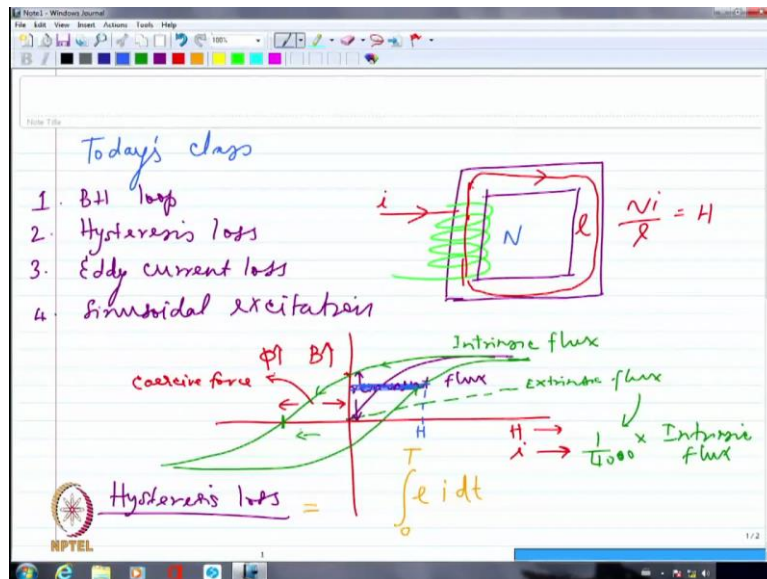 Note1 - Windows Journal
File Edit View Insert Actions Tools Help
100%
B I
Note Title
Today's class
1. BH loop
2. Hysteresis loss
3. Eddy current loss
4. Sinusoidal excitation
i
N
l
Ni/l = H
Φ↑ B↑
Intrinsic flux
Coercive force
flux
Extrinsic flux
H
H →
i → 1/4000 × Intrinsic flux
Hysteresis loss = ∫₀ᵀ e i dt
NPTEL
1
1 / 2